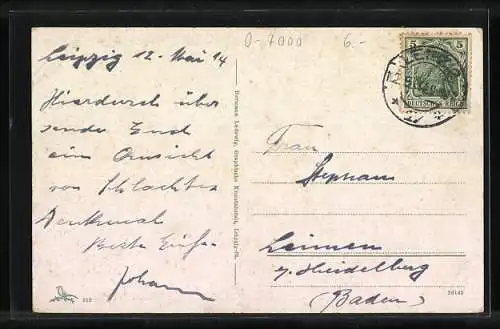 0-7000 6.-
Leipzig 12. Mai 14
Hierdurch über
sende Euch
eine Ansicht
von Schlachten
Denkmal
Beste Grüße
Johann
312
Hermann Ludewig, Graphische Kunstanstalt, Leipzig-R.
5 5
DEUTSCHES REICH
LEIPZIG
Frau
Stephan
Leimen
b/Heidelberg
(Baden)